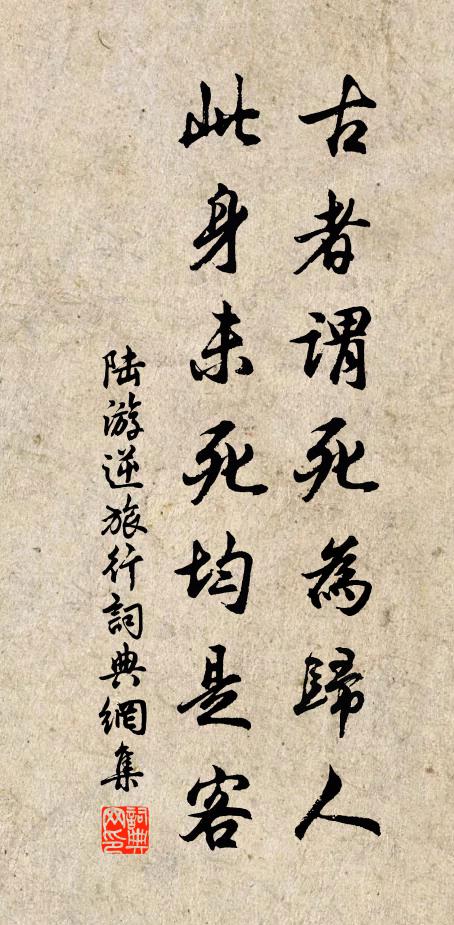 古者謂死為歸人
此身未死均是客
陆游逆旅行詞典網集
詞典網印